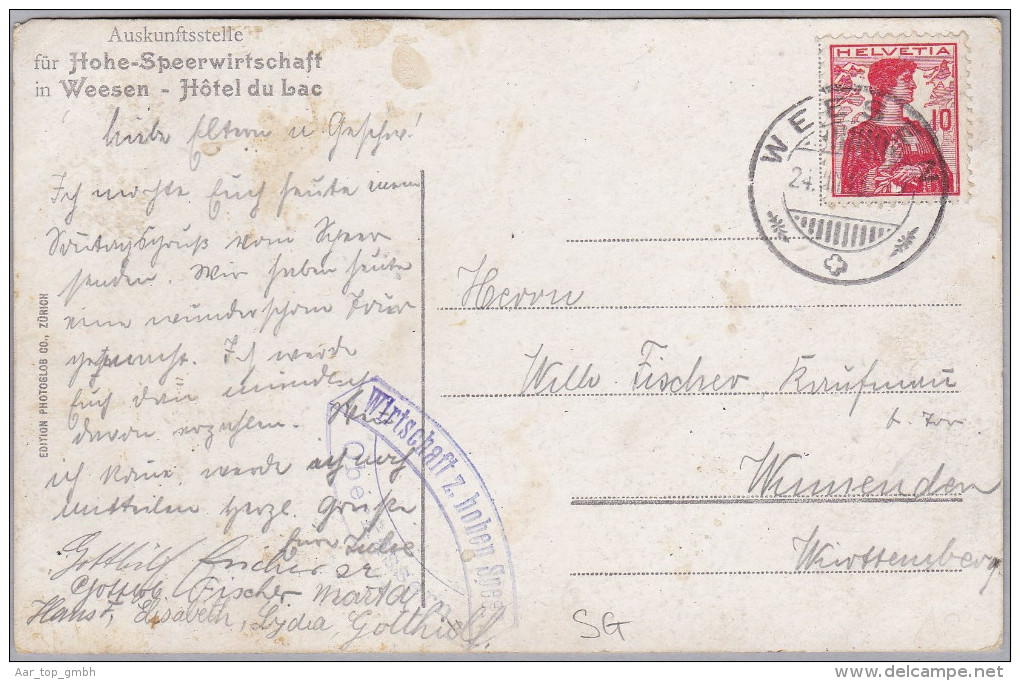 Auskunftsstelle
für Hohe-Speerwirtschaft
in Weesen - Hôtel du Lac
Liebe Eltern u Geschw!
Ich möchte Euch heute mein
Sontagsgruß vom Speer
senden. Wir haben heute
eine wunderschöne Tour
gemacht. Ich werde
Euch dan mündlich
davon erzählen. Wie
ich kome werde ich noch
mitteilen herzl. Grüße
Eure
Gottlieb Fischer sr
Gottlob Fischer Marta
Hans F, Elisabeth, Lydia, Gotthilf.
EDITION PHOTOGLOB CO., ZÜRICH
HELVETIA
10
WEESEN
24.
Herrn
Willh Fischer Kaufmau
b. Tor
Winnenden
Württemberg
Wirtschaft z. hohen Spee
Ober
SG
Aar_top_gmbh
www.delcampe.net